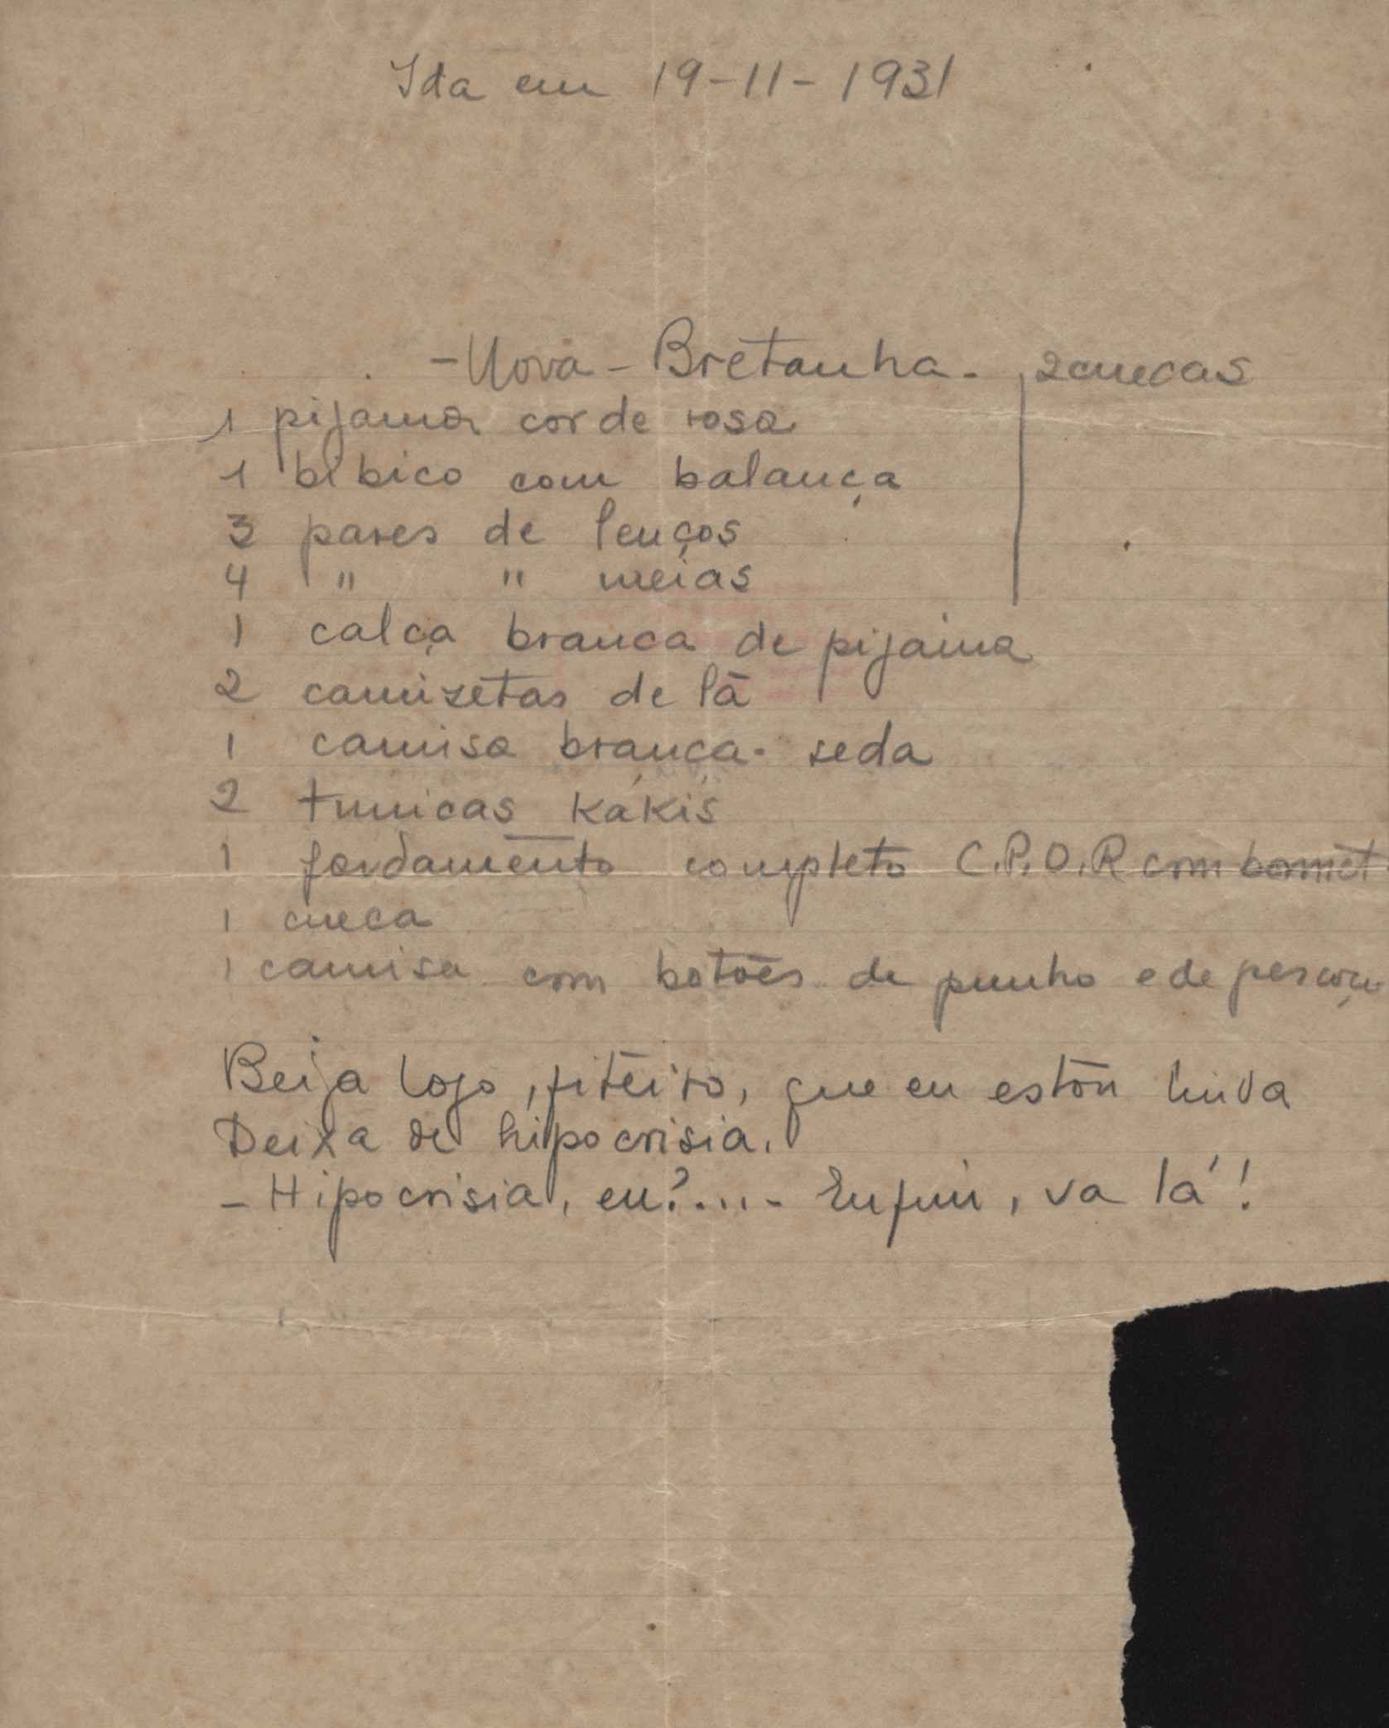 Ida em 19-11-1931
- Nova - Bretanha - 2 cuecas
1 pijama cor de rosa
1 bibico com balança
3 pares de lenços
4 " " meias
1 calça branca de pijama
2 camizetas de lã
1 camisa branca - seda
2 tunicas kákis
1 fardamento completo C.P.O.R com bonnet
1 cueca
1 camisa com botões de punho e de pescoço
Beija logo, fiteiro, que eu estou linda
Deixa de hipocrisia.
- Hipocrisia, eu?... - Enfim, va lá!